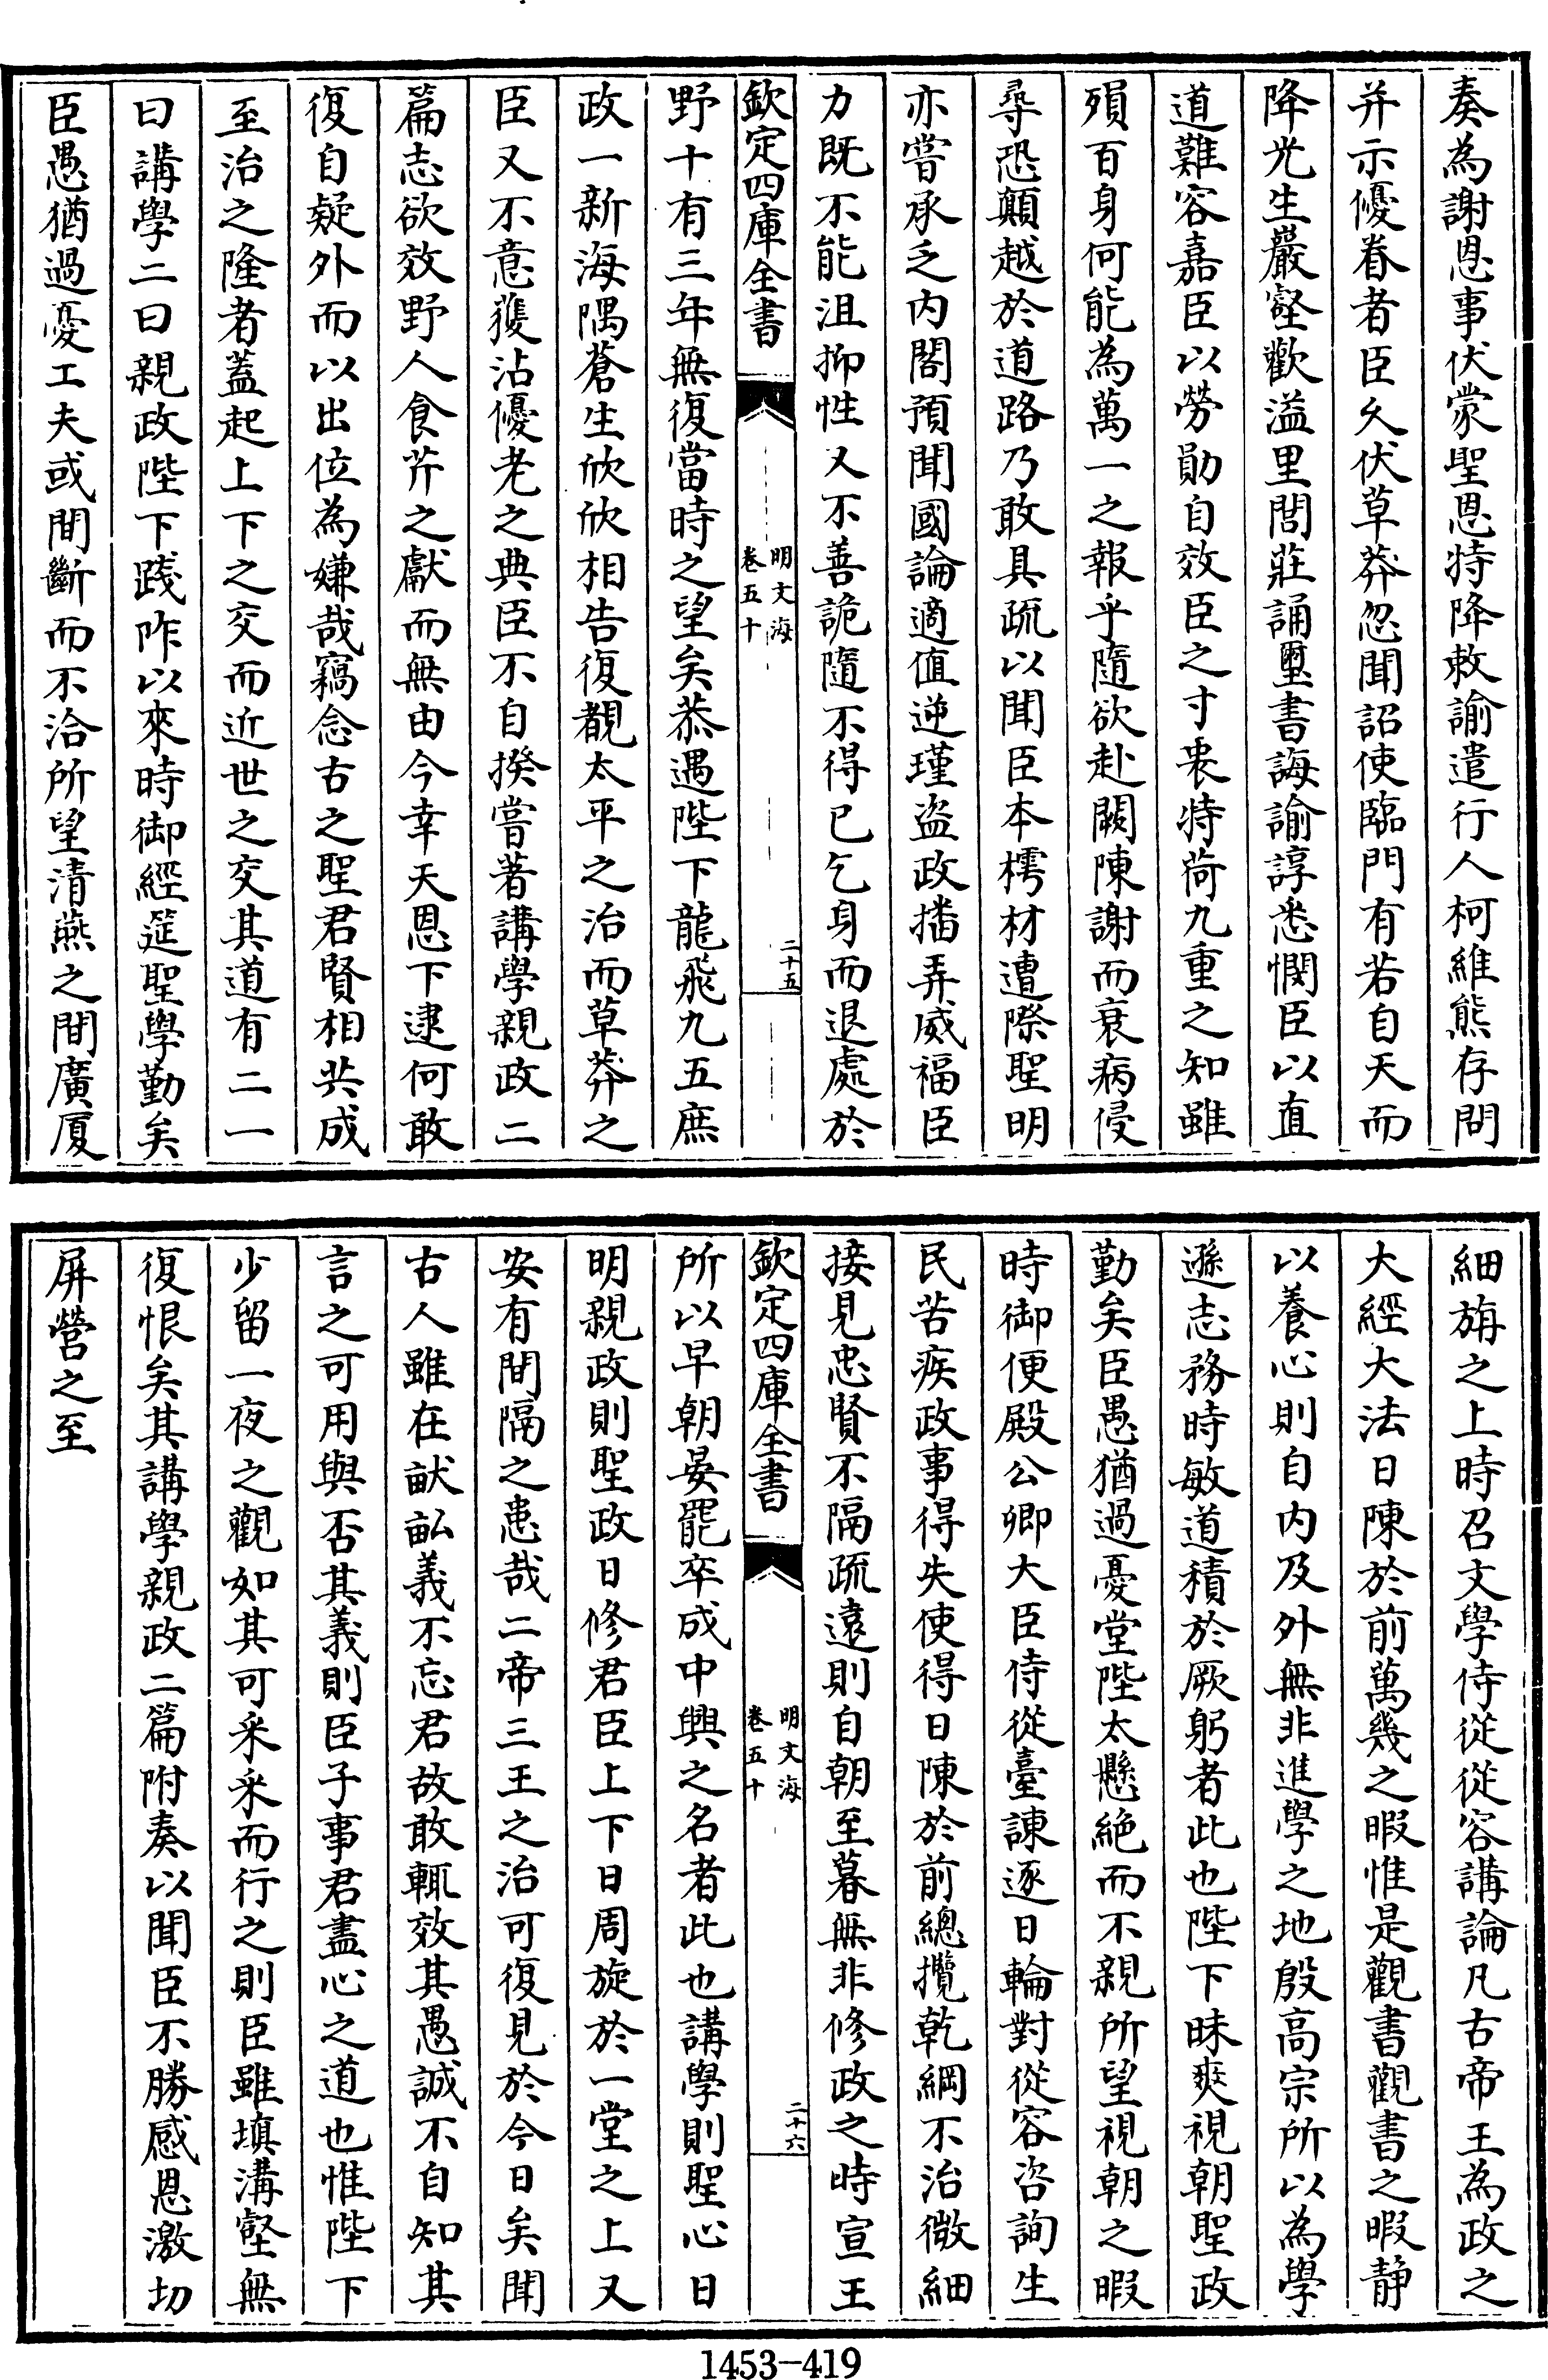 奏為謝恩事伏蒙聖恩特降敕諭遣行人柯維熊存問
并示優眷者臣久伏草莽忽聞詔使臨門有若自天而
降光生巖壑歡溢里閭莊誦璽書誨諭諄悉憫臣以直
道難容嘉臣以勞勛自效臣之寸衷特荷九重之知雖
殞百身何能為萬一之報乎隨欲赴闕陳謝而衰病侵
尋恐顛越於道路乃敢具疏以聞臣本樗材遭際聖明
亦嘗承乏内閣預聞國論適值逆瑾盜政播弄威福臣
力既不能沮抑性又不善詭隨不得已乞身而退處於
欽定四庫全書
明文海
卷五十
二十五
野十有三年無復當時之望矣恭遇陛下龍飛九五庶
政一新海隅蒼生欣欣相告復覩太平之治而草莽之
臣又不意獲沾優老之典臣不自揆嘗著講學親政二
篇志欲效野人食芹之獻而無由今幸天恩下逮何敢
復自疑外而以出位為嫌哉竊念古之聖君賢相共成
至治之隆者蓋起上下之交而近世之交其道有二一
曰講學二曰親政陛下踐阼以來時御經筵聖學勤矣
臣愚猶過憂工夫或間斷而不洽所望清燕之間廣厦
細旃之上時召文學侍從從容講論凡古帝王為政之
大經大法日陳於前萬幾之暇惟是觀書觀書之暇静
以養心則自内及外無非進學之地殷高宗所以為學
遜志務時敏道積於厥躬者此也陛下昧爽視朝聖政
勤矣臣愚猶過憂堂陛太懸絶而不親所望視朝之暇
時御便殿公卿大臣侍從臺諫逐日輪對從容咨詢生
民苦疾政事得失使得日陳於前總攬乾綱不治微細
接見忠賢不隔疏遠則自朝至暮無非修政之時宣王
欽定四庫全書
明文海
卷五十
二十六
所以早朝晏罷卒成中興之名者此也講學則聖心日
明親政則聖政日修君臣上下日周旋於一堂之上又
安有間隔之患哉二帝三王之治可復見於今日矣聞
古人雖在畎畝義不忘君故敢輒效其愚誠不自知其
言之可用與否其義則臣子事君盡心之道也惟陛下
少留一夜之觀如其可采采而行之則臣雖填溝壑無
復恨矣其講學親政二篇附奏以聞臣不勝感恩激切
屏營之至
1453-419